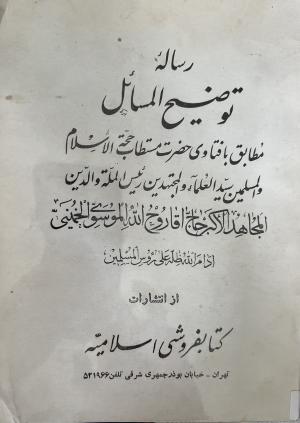 رسالهٔ
توضیح المسائل
مطابق با فتاوی حضرت مستطاب حجة الاسلام
والمسلمین سید العلماء والمجتهدین رئیس الملة والدین
المجاهد الاکبر حاج آقا روح الله الموسوی الخمینی
ادام الله ظله علی رؤس المسلمین
از انتشارات
کتابفروشی اسلامیه
تهران - خیابان بوذرجمهری شرقی تلفن ۵۲۱۹۶۶